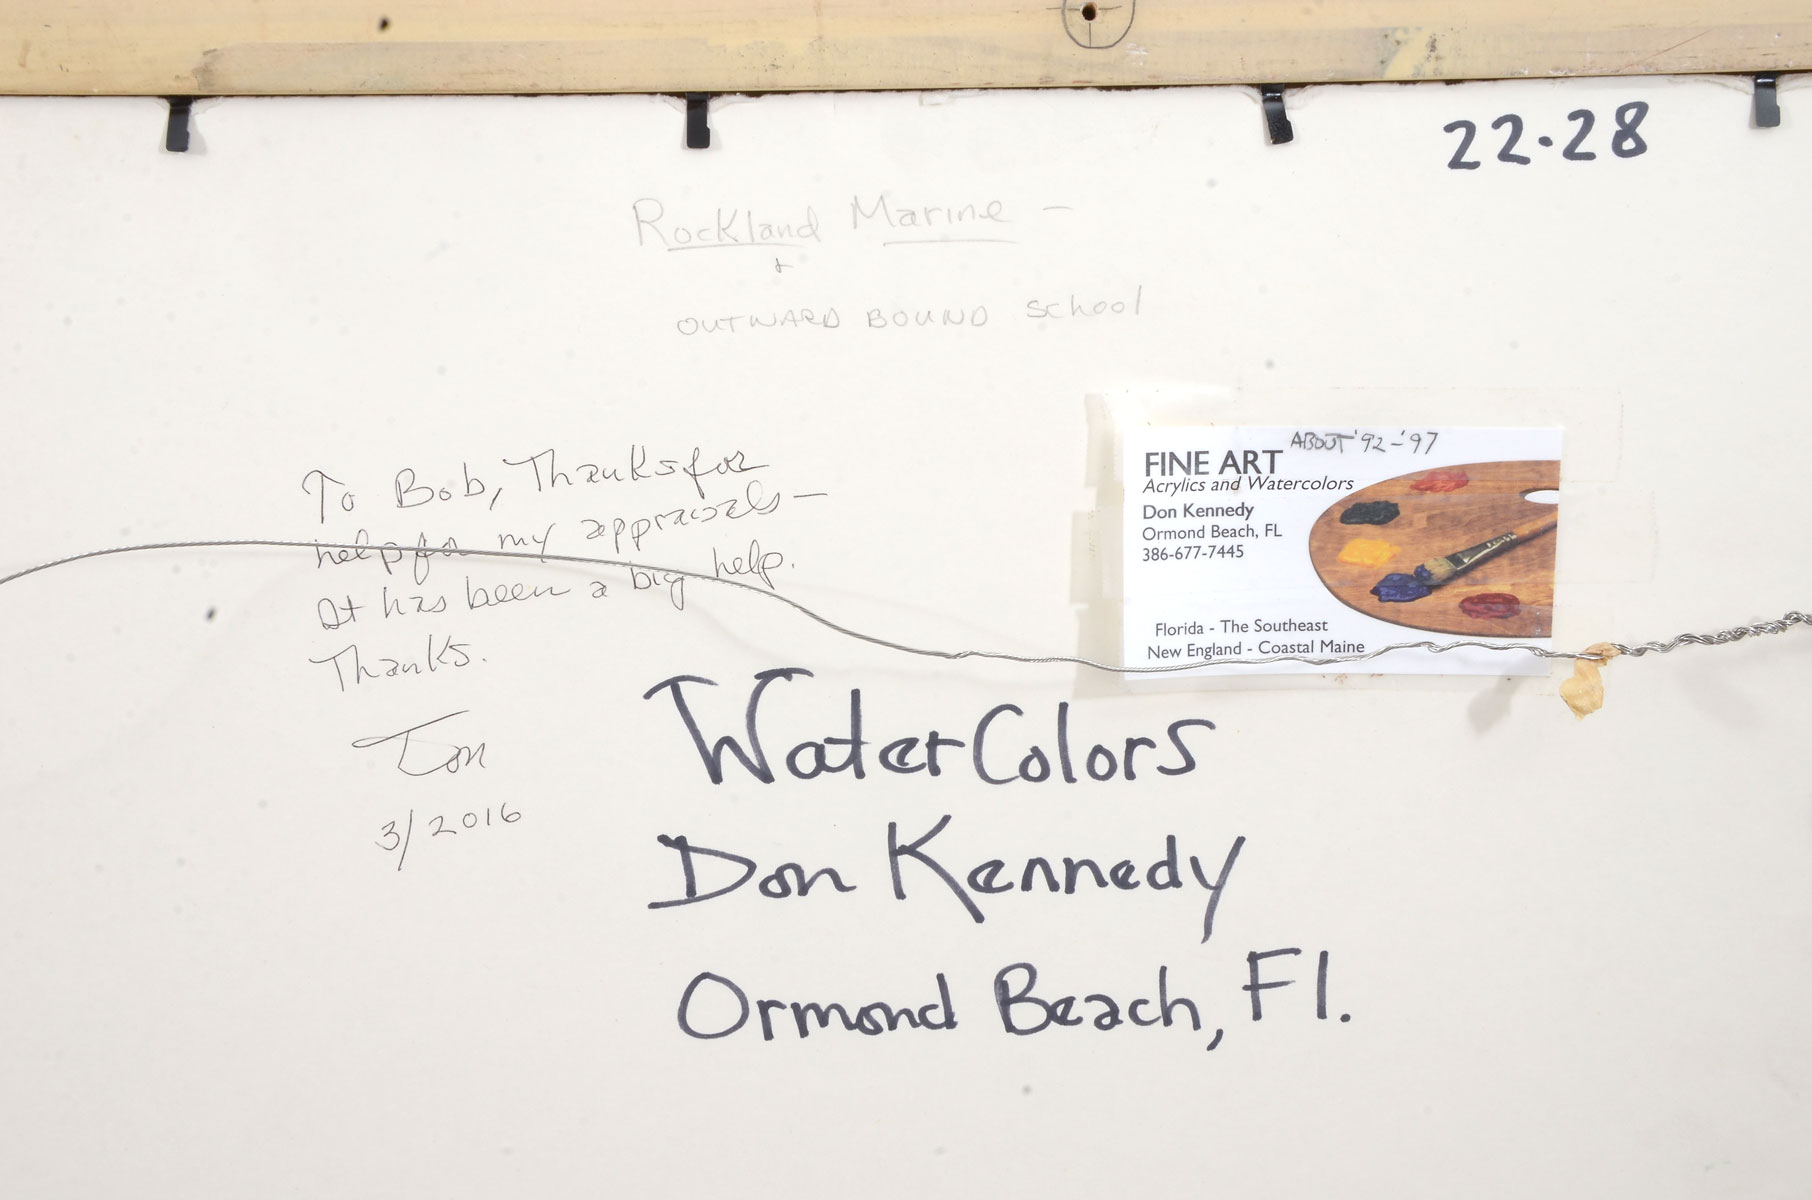 22·28
Rockland Marine –
+
OUTWARD BOUND School
To Bob, Thanks for
help for my appraisals –
It has been a big help.
Thanks.
Don
3/2016
ABOUT '92-'97
FINE ART
Acrylics and Watercolors
Don Kennedy
Ormond Beach, FL
386-677-7445
Florida - The Southeast
New England - Coastal Maine
WaterColors
Don Kennedy
Ormond Beach, Fl.